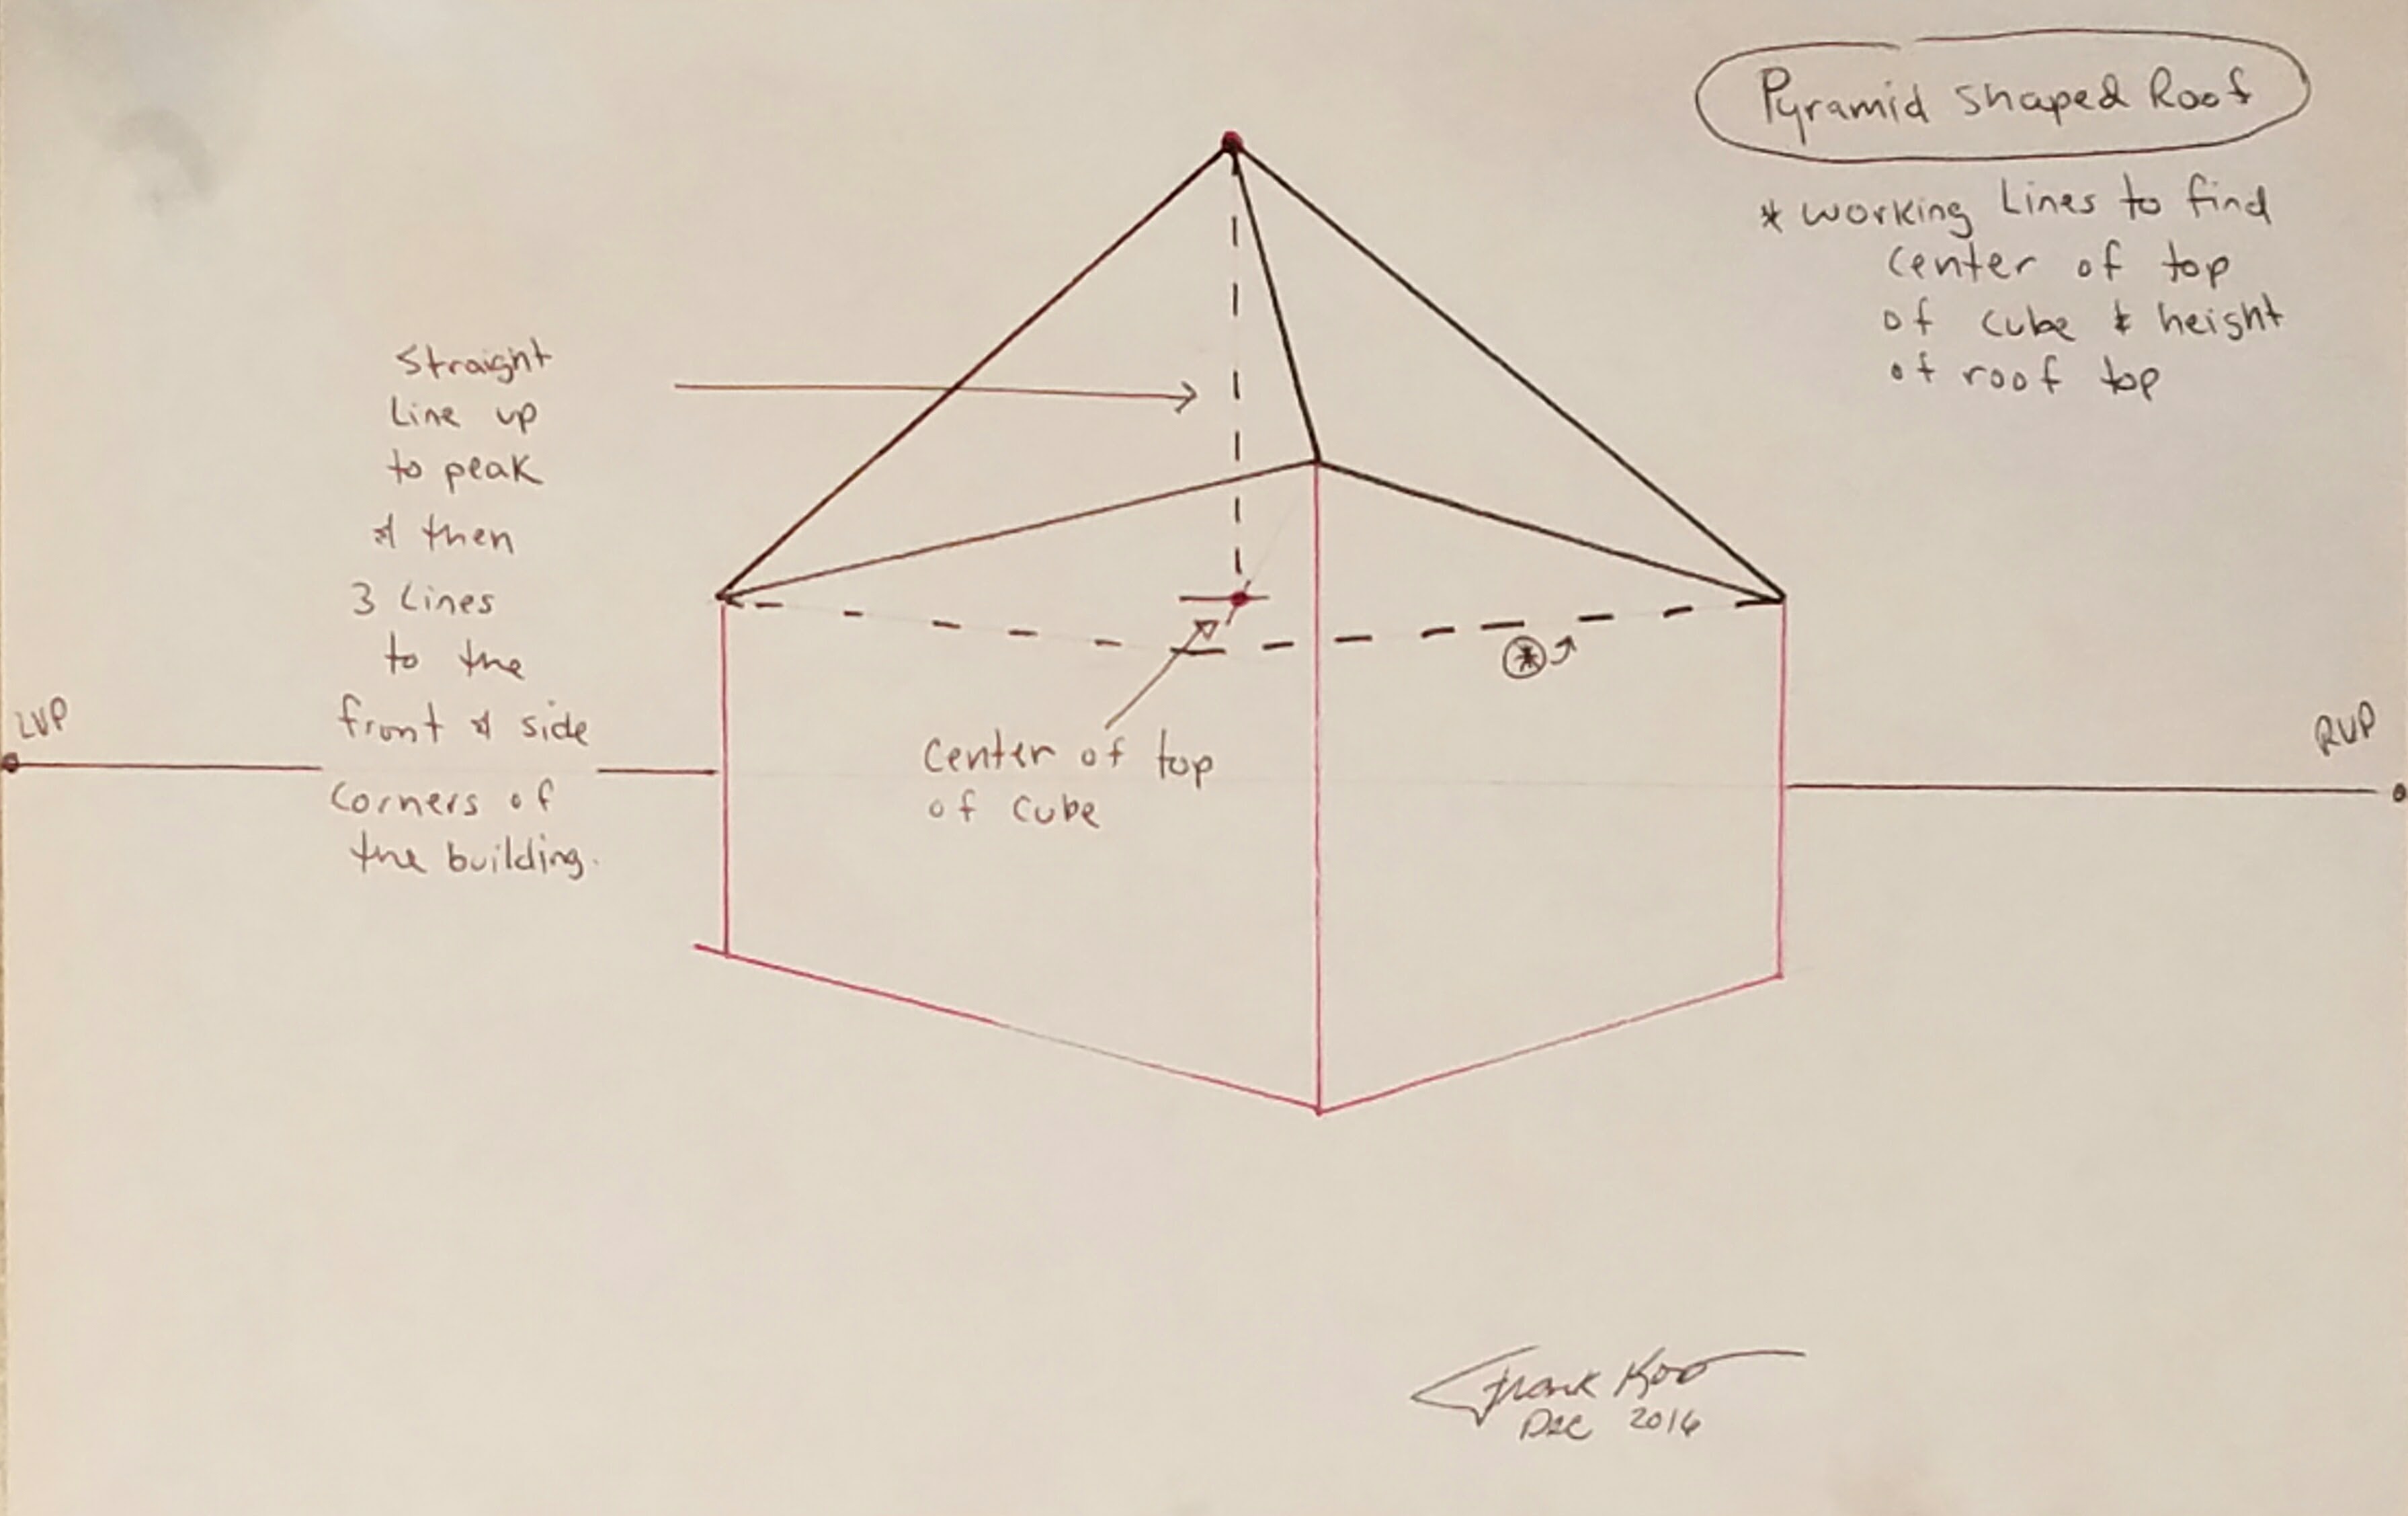 Pyramid Shaped Roof
* Working Lines to find
center of top
of cube & height
of roof top
Straight
Line up
to peak
& then
3 Lines
to the
front & side
corners of
the building.
LVP
RVP
*
Center of top
of Cube
Frank Koo
Dec 2016